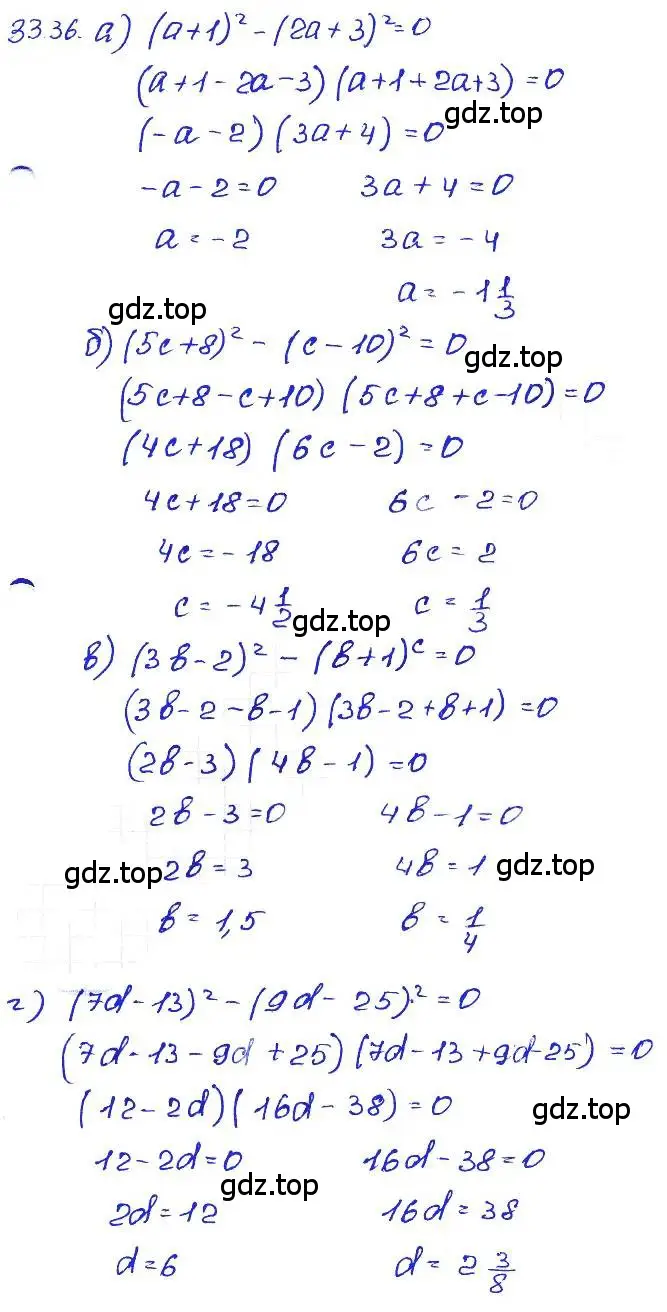 33.36. а) (a+1)² - (2a+3)² = 0
(a+1-2a-3)(a+1+2a+3) = 0
gdz.top
(-a-2)(3a+4) = 0
-a-2=0 3a+4=0
a = -2 3a = -4
a = -1 1/3
gdz.top
б) (5c+8)² - (c-10)² = 0
gdz.top
(5c+8-c+10)(5c+8+c-10) = 0
(4c+18)(6c-2) = 0
4c+18=0 6c-2=0
4c = -18 6c = 2
c = -4 1/2 c = 1/3
gdz.top
в) (3b-2)² - (b+1)ᶜ = 0
(3b-2-b-1)(3b-2+b+1) = 0
(2b-3)(4b-1) = 0
2b-3=0 4b-1=0
gdz.top 2b = 3 4b = 1 gdz.top
b = 1,5 b = 1/4
г) (7d-13)² - (9d-25)² = 0
(7d-13-9d+25)(7d-13+9d-25) = 0
(12-2d)(16d-38) = 0
gdz.top
12-2d=0 16d-38=0
gdz.top
2d=12 16d=38
d=6 d = 2 3/8